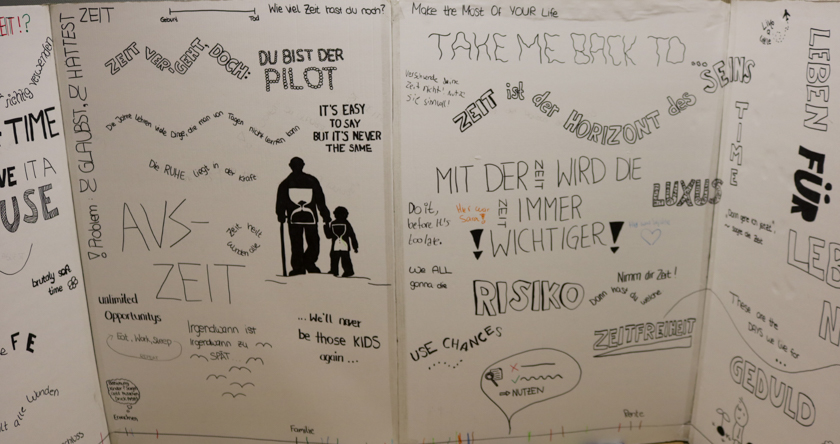 EIT!?
sichtig verwenden
TIME
VE IT A
USE
brutaly soft
time
FE
Wunden
! Problem: DU GLAUBST, DU HÄTTEST ZEIT
Geburt
Tod
Wie viel Zeit hast du noch?
ZEIT VER-GEHT, DOCH:
DU BIST DER
PILOT
IT'S EASY
TO SAY
BUT IT'S NEVER
THE SAME
Die Jahre lehren viele Dinge, die man von Tagen nicht lernen kann
Die RUHE liegt in der Kraft
AUS-
ZEIT
Zeit heilt
Wunden
unlimited
Opportunitys
Eat, Work, Sleep
Irgendwann ist
Irgendwann zu
SPÄT
... We'll never
be those KIDS
again ...
Familie
Make the Most Of YOUR Life
TAKE ME BACK TO ...
Verschwende deine
Zeit nicht! Nutze
sie sinnvoll!
ZEIT ist der HORIZONT des SEINS
MIT DER ZEIT WIRD DIE
ZEIT IMMER
! WICHTIGER!
LUXUS
Do it,
before it's
too late.
We ALL
gonna die
RISIKO
Nimm dir Zeit!
Dann hast du welche
ZEITFREIHEIT
USE CHANCES
NUTZEN
Rente
Live
TIME
LEBEN
FÜR
LEBE
N
These are the
DAYS we live for
GEDULD